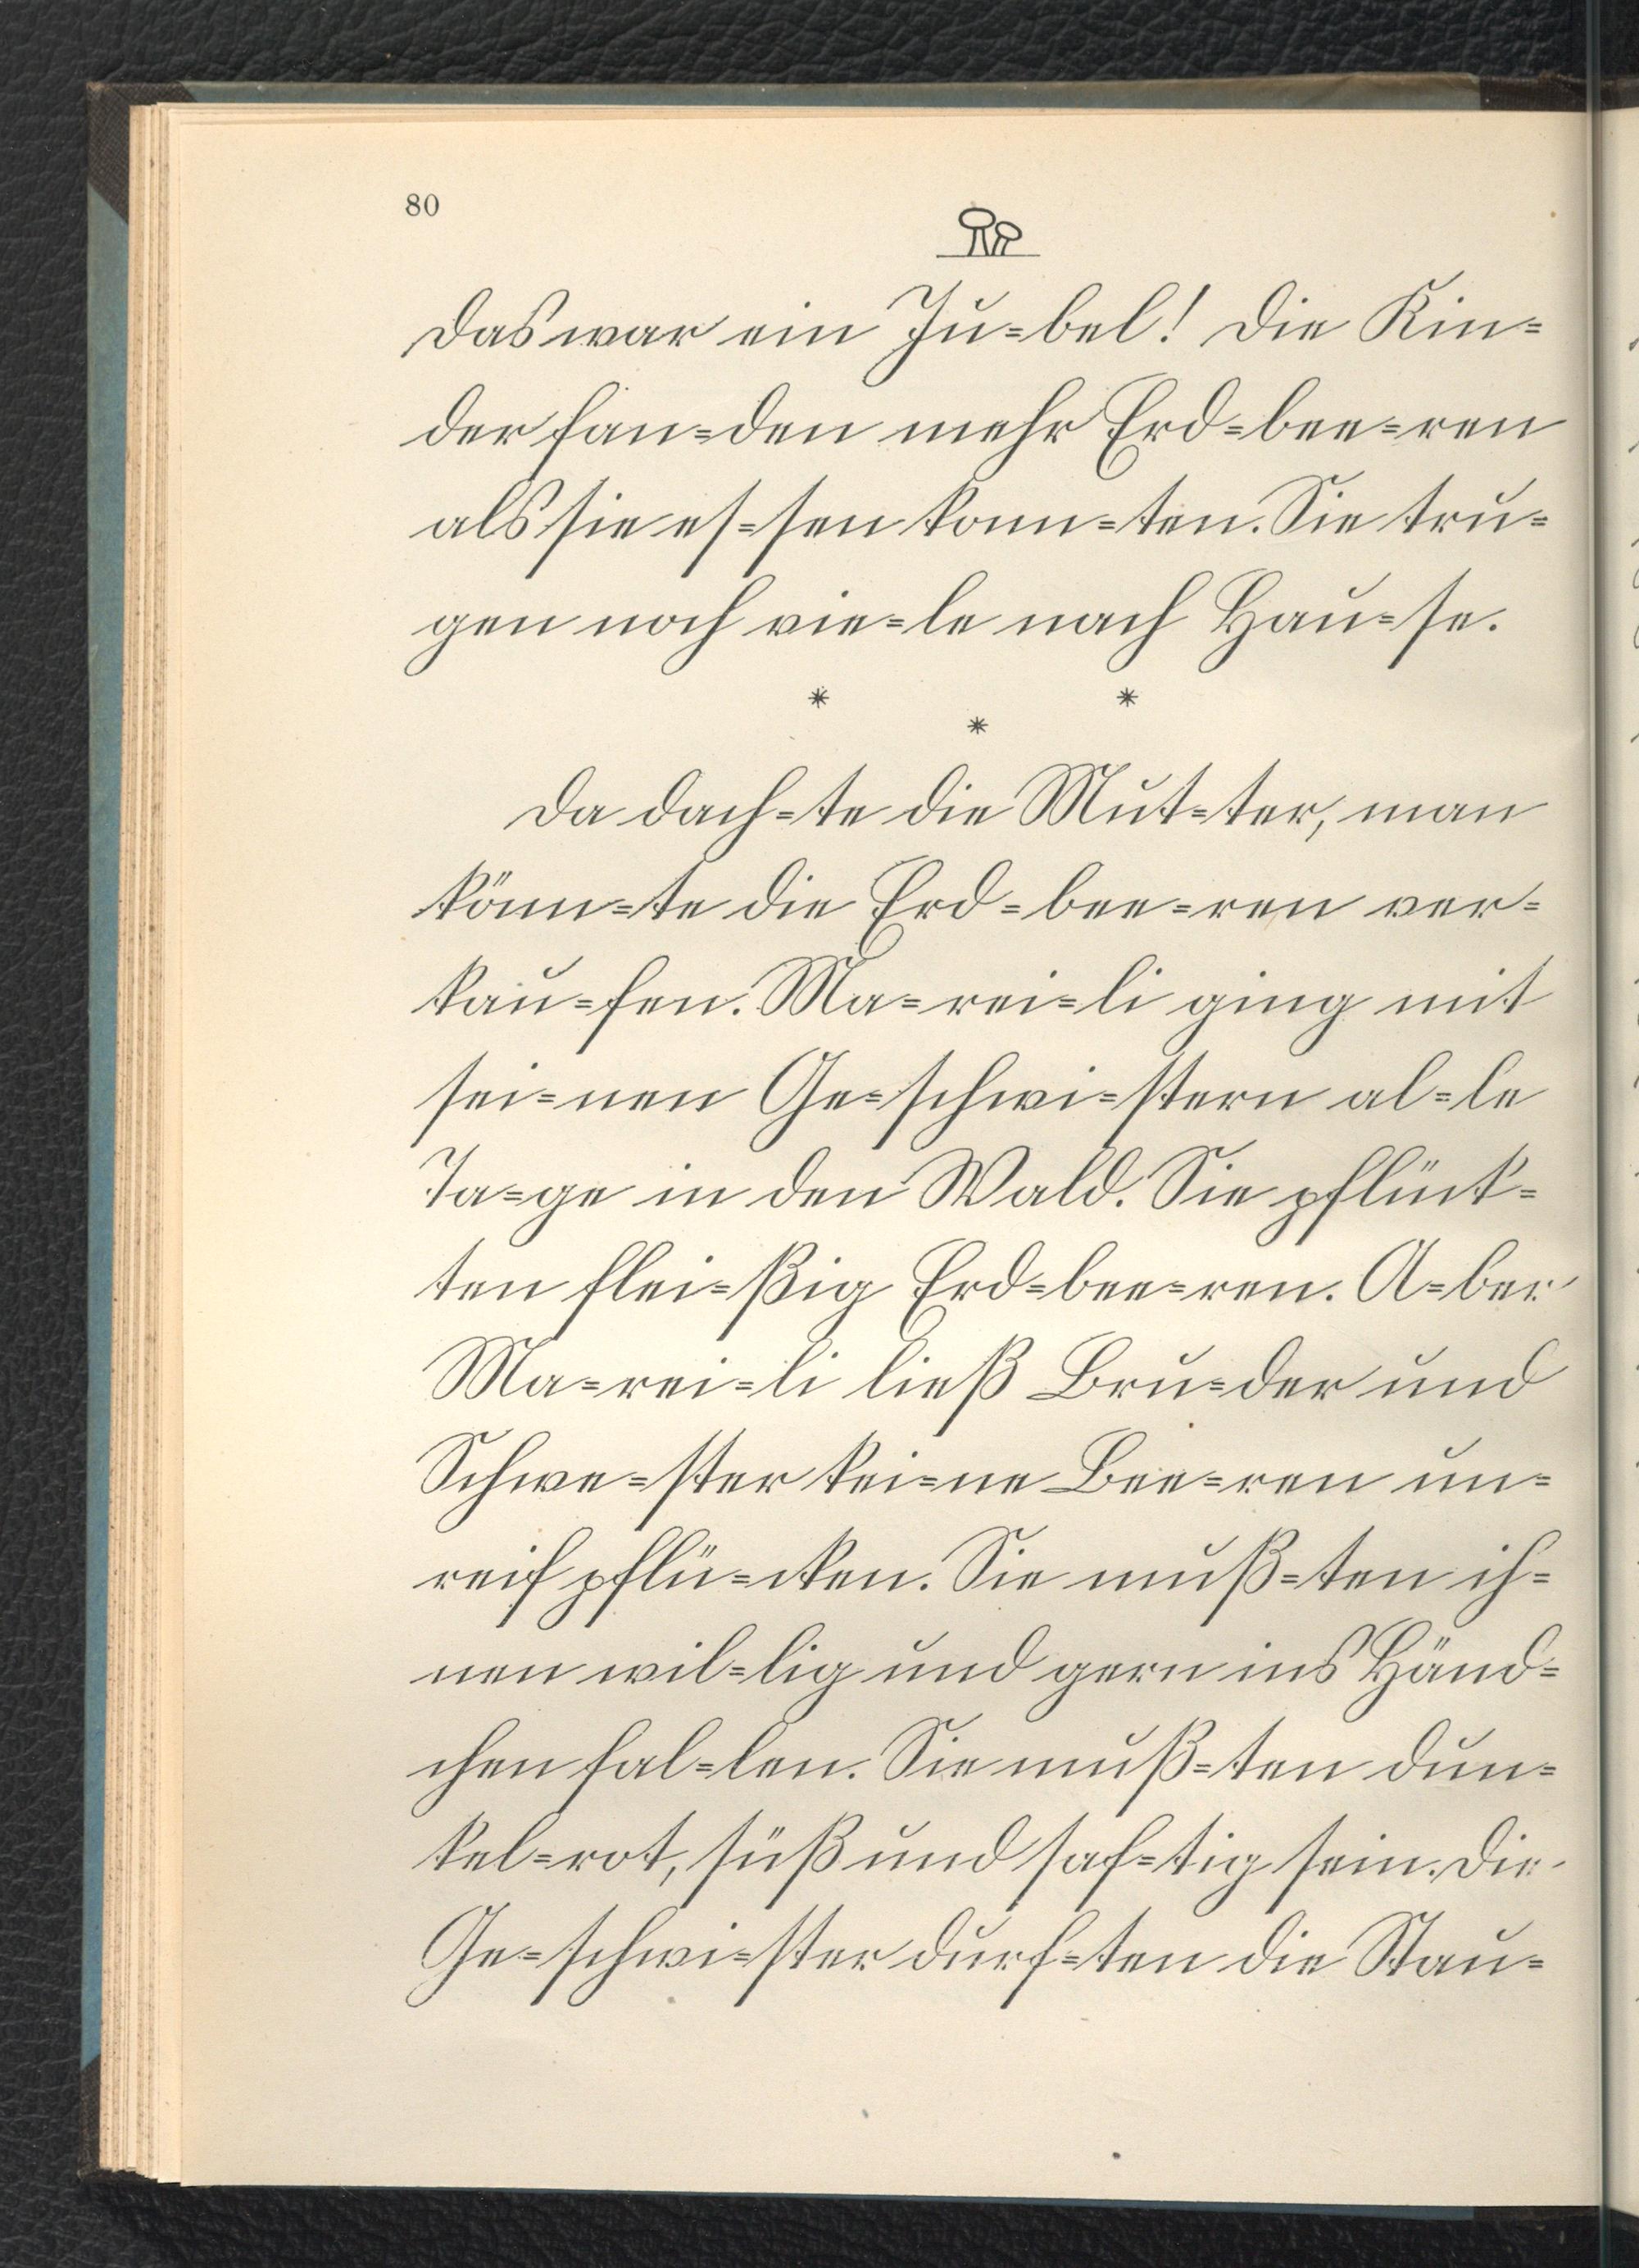 80
Das war ein Ju=bel! Die Kin=
der fan=den mehr Erd=bee=ren
als sie es=sen konn=ten. Sie tru=
gen noch vie=le nach Hau=se.
* * *
Da dach=te die Mut=ter, man
könn=te die Erd=bee=ren ver=
kau=fen. Ma=rei=li ging mit
sei=nen Ge=schwi=stern al=le
Ta=ge in den Wald. Sie pflück=
ten flei=ßig Erd=bee=ren. A=ber
Ma=rei=li ließ Bru=der und
Schwe=ster kei=ne Bee=ren un=
reif pflü=cken. Sie muß=ten ih=
nen wil=lig und gern ins Händ=
chen fal=len. Sie muß=ten dun=
kel=rot, süß und saf=tig sein. Die
Ge=schwi=ster durf=ten die Stau=